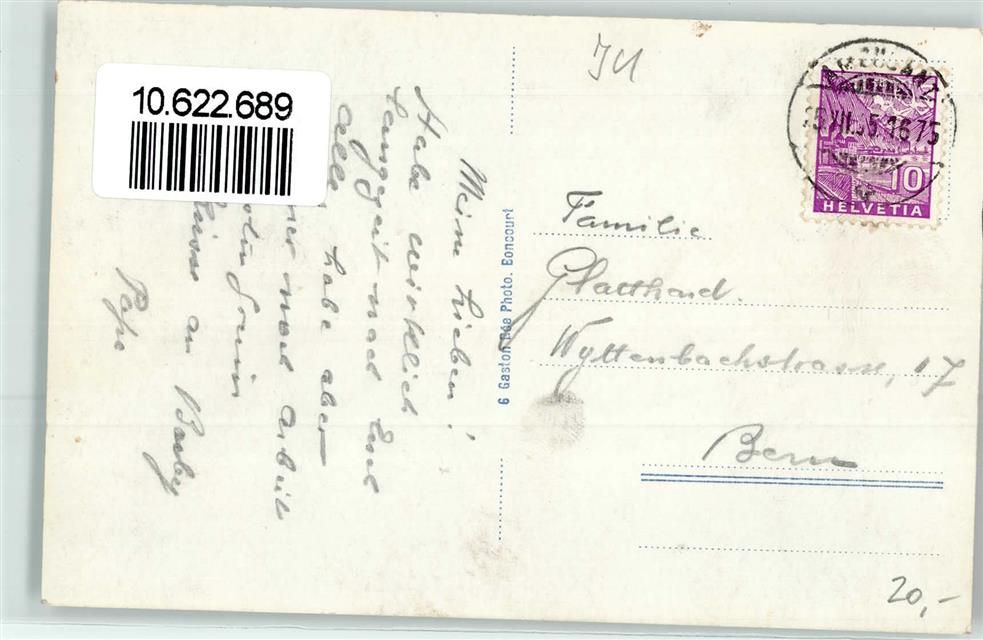 10.622.689
Meine Lieben!
Habe wirklich
langzeit nach Euch
alle habe aber
noch Arbeit
an Baby
Papa
6 Gaston Béa Photo. Boncourt
JU
16
10
HELVETIA
Familie
Glatthard.
Wyttenbachstrasse, 17
Bern
20,-